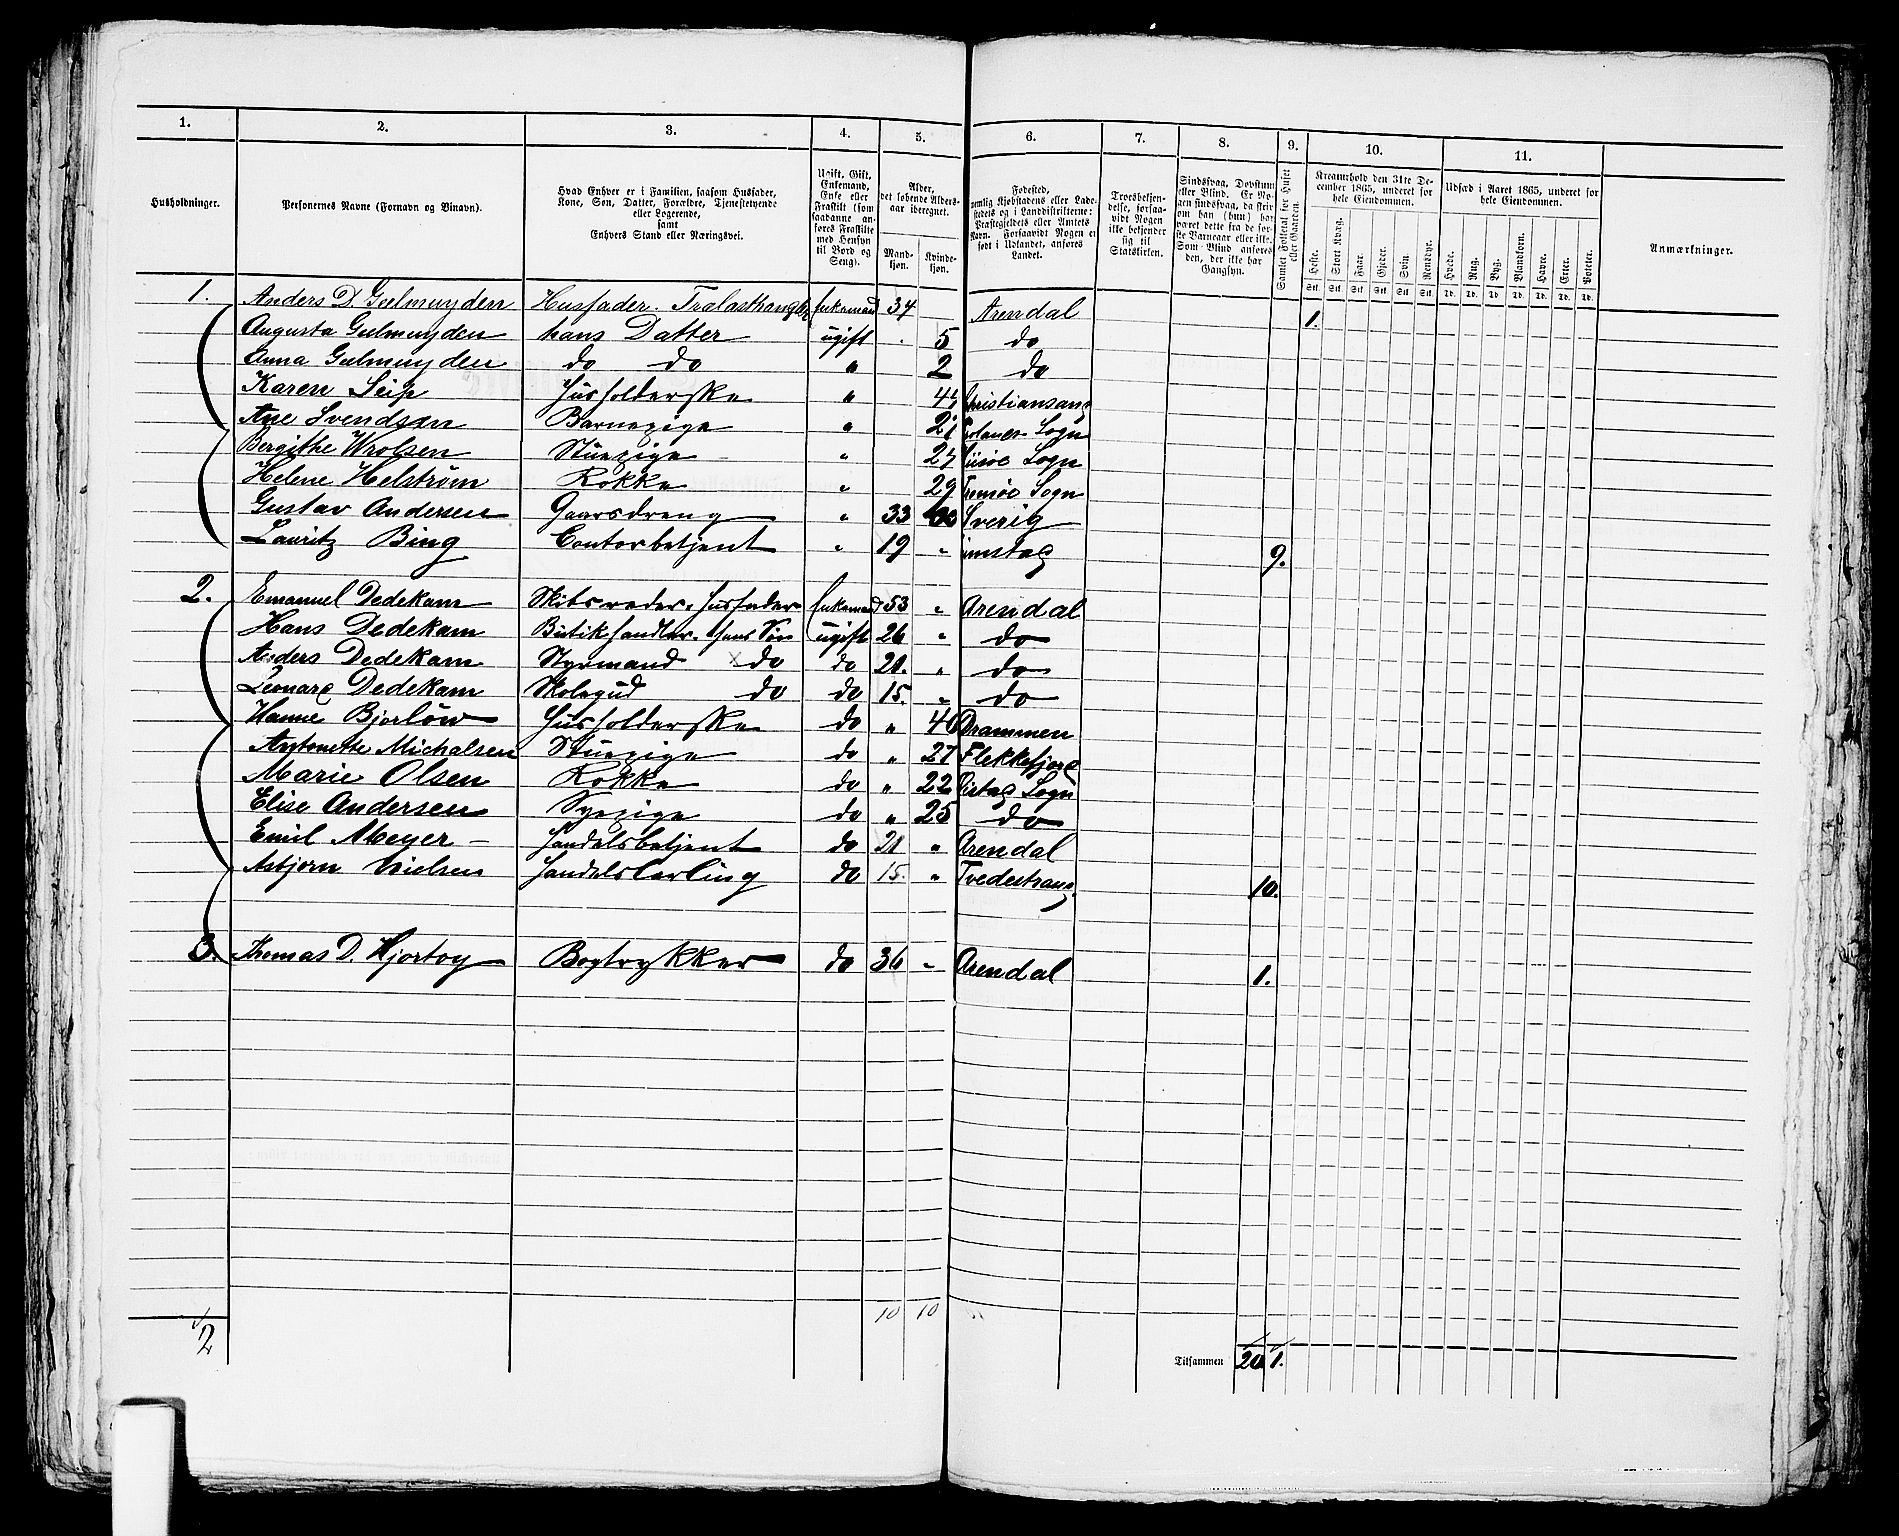 1. 2. 3. 4. 5. 6. 7. 8. 9. 10. 11.
Husholdninger.
Personernes Navne (Fornavn og Binavn).
Hvad Enhver er i Familien, saasom Husfader, Kone, Søn, Datter, Forældre, Tjenestetyende eller Logerende, samt Enhvers Stand eller Næringsvei.
Ugift, Gift, Enkemand, Enke eller Fraskilt (som saadanne anføres Fraskilte med Hensyn til Bord og Seng).
Alder, det løbende Aldersaar iberegnet.
Mandkjøn. Kvindekjøn.
Fødested, nemlig Kjøbstadens eller Ladestedets og i Landdistrikterne: Præstegjeldets eller Amtets Navn. Forsaavidt Nogen er født i Udlandet, anføres Landet.
Troesbekjendelse, forsaavidt Nogen ikke bekjender sig til Statskirken.
Sindssvag, Døvstum eller Blind. Er Nogen sindssvag, da skrives om han (hun) har været dette fra de første Barneaar eller ikke. Som Blind ansees den, der ikke har Gangsyn.
Samlet Folketal for Huset eller Gaarden.
Kreaturhold den 31te December 1865, underet for hele Eiendommen.
Heste. Stort Kvæg. Faar. Gjeder. Svin. Rensdyr.
Udsæd i Aaret 1865, underet for hele Eiendommen.
Hvede. Rug. Byg. Blandkorn. Havre. Erter. Poteter.
Anmærkninger.
Stk. Stk. Stk. Stk. Stk. Stk. Td. Td. Td. Td. Td. Td. Td.
1. Anders D. Gulmuyden Husfader. Enkemand 34 Arendal 1.
Augusta Gulmuyden hans Datter ugift 5 do
Anna Gulmuyden do do " 2 do
Karen Seip Husholderske " Christiansand
Ane Svendsen Barnepige " 21 Sogn
Bergithe Wrolsen Stuepige " 27 Sogn
Helene Helstrøm Kokke " 29 Tromøe Sogn
Gustav Andersen Gaarsdreng " 33 Sverig
Lauritz Bing Contorbetjent " 19 " 9.
2. Emanuel Dedekam Skibsreder. Husfader Enkemand 53 " Arendal
Hans Dedekam Butikhandler. hans Søn ugift 26 " do
Anders Dedekam Styrmand do do 21. " do
Leonard Dedekam Skolegud do do 15. " do
Hanne Bjorlöw Husholderske do " 40 Drammen
Antonette Michalsen Stuepige do " 27 Flekkefjord
Marie Olsen Kokke do " 22 Sogn
Elise Andersen Sypige do " 25 do
Emil Meyer – Handelsbetjent do 21 " Arendal
Asbjorn Nielsen Handelslerling do 15. " Tvedestrand 10.
3. Thomas D. Hjortoy Bogtrykker do 36 " Arendal 1.
10 10
2
Tilsammen 20 1.